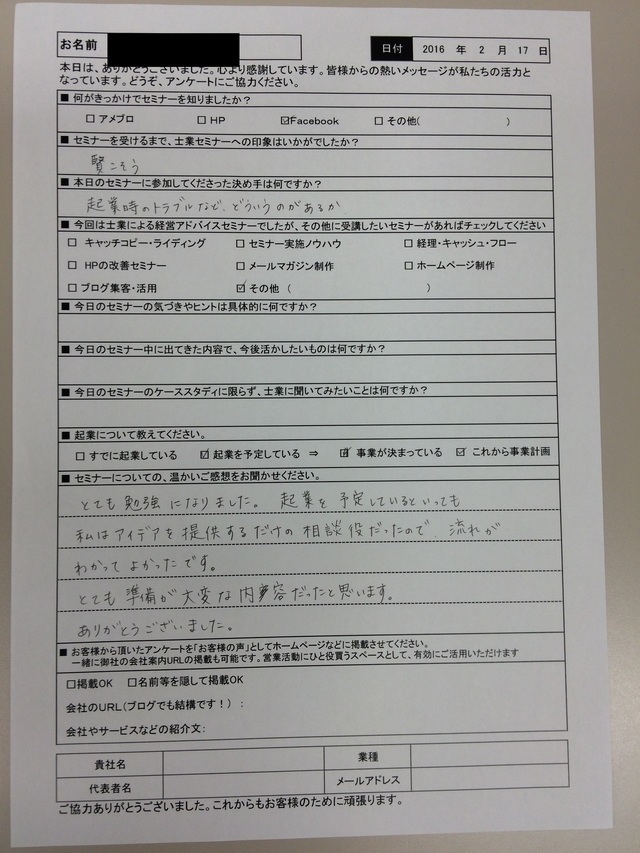 お名前
日付 2016 年 2 月 17 日
本日は、ありがとうございました。心より感謝しています。皆様からの熱いメッセージが私たちの活力と
なっています。どうぞ、アンケートにご協力ください。
■ 何がきっかけでセミナーを知りましたか?
□ アメブロ □ HP ☑Facebook □ その他( )
■ セミナーを受けるまで、士業セミナーへの印象はいかがでしたか?
賢こそう
■ 本日のセミナーに参加してくださった決め手は何ですか?
起業時のトラブルなど、どういうのがあるか
■ 今回は士業による経営アドバイスセミナーでしたが、その他に受講したいセミナーがあればチェックしてください
□ キャッチコピー・ライディング □ セミナー実施ノウハウ □ 経理・キャッシュ・フロー
□ HPの改善セミナー □ メールマガジン制作 □ ホームページ制作
□ ブログ集客・活用 ☑ その他 ( )
■ 今日のセミナーの気づきやヒントは具体的に何ですか?
■ 今日のセミナー中に出てきた内容で、今後活かしたいものは何ですか?
■ 今日のセミナーのケーススタディに限らず、士業に聞いてみたいことは何ですか?
■ 起業について教えてください。
□ すでに起業している ☑ 起業を予定している ⇒ ☑ 事業が決まっている ☑ これから事業計画
■ セミナーについての、温かいご感想をお聞かせください。
とても勉強になりました。 起業を予定しているといっても
私はアイデアを提供するだけの相談役だったので、流れが
わかってよかったです。
とても準備が大変な内容だったと思います。
ありがとうございました。
■ お客様から頂いたアンケートを「お客様の声」としてホームページなどに掲載させてください。
一緒に御社の会社案内URLの掲載も可能です。営業活動にひと役買うスペースとして、有効にご活用いただけます
□掲載OK □名前等を隠して掲載OK
会社のURL(ブログでも結構です!):
会社やサービスなどの紹介文:
貴社名 業種
代表者名 メールアドレス
ご協力ありがとうございました。これからもお客様のために頑張ります。